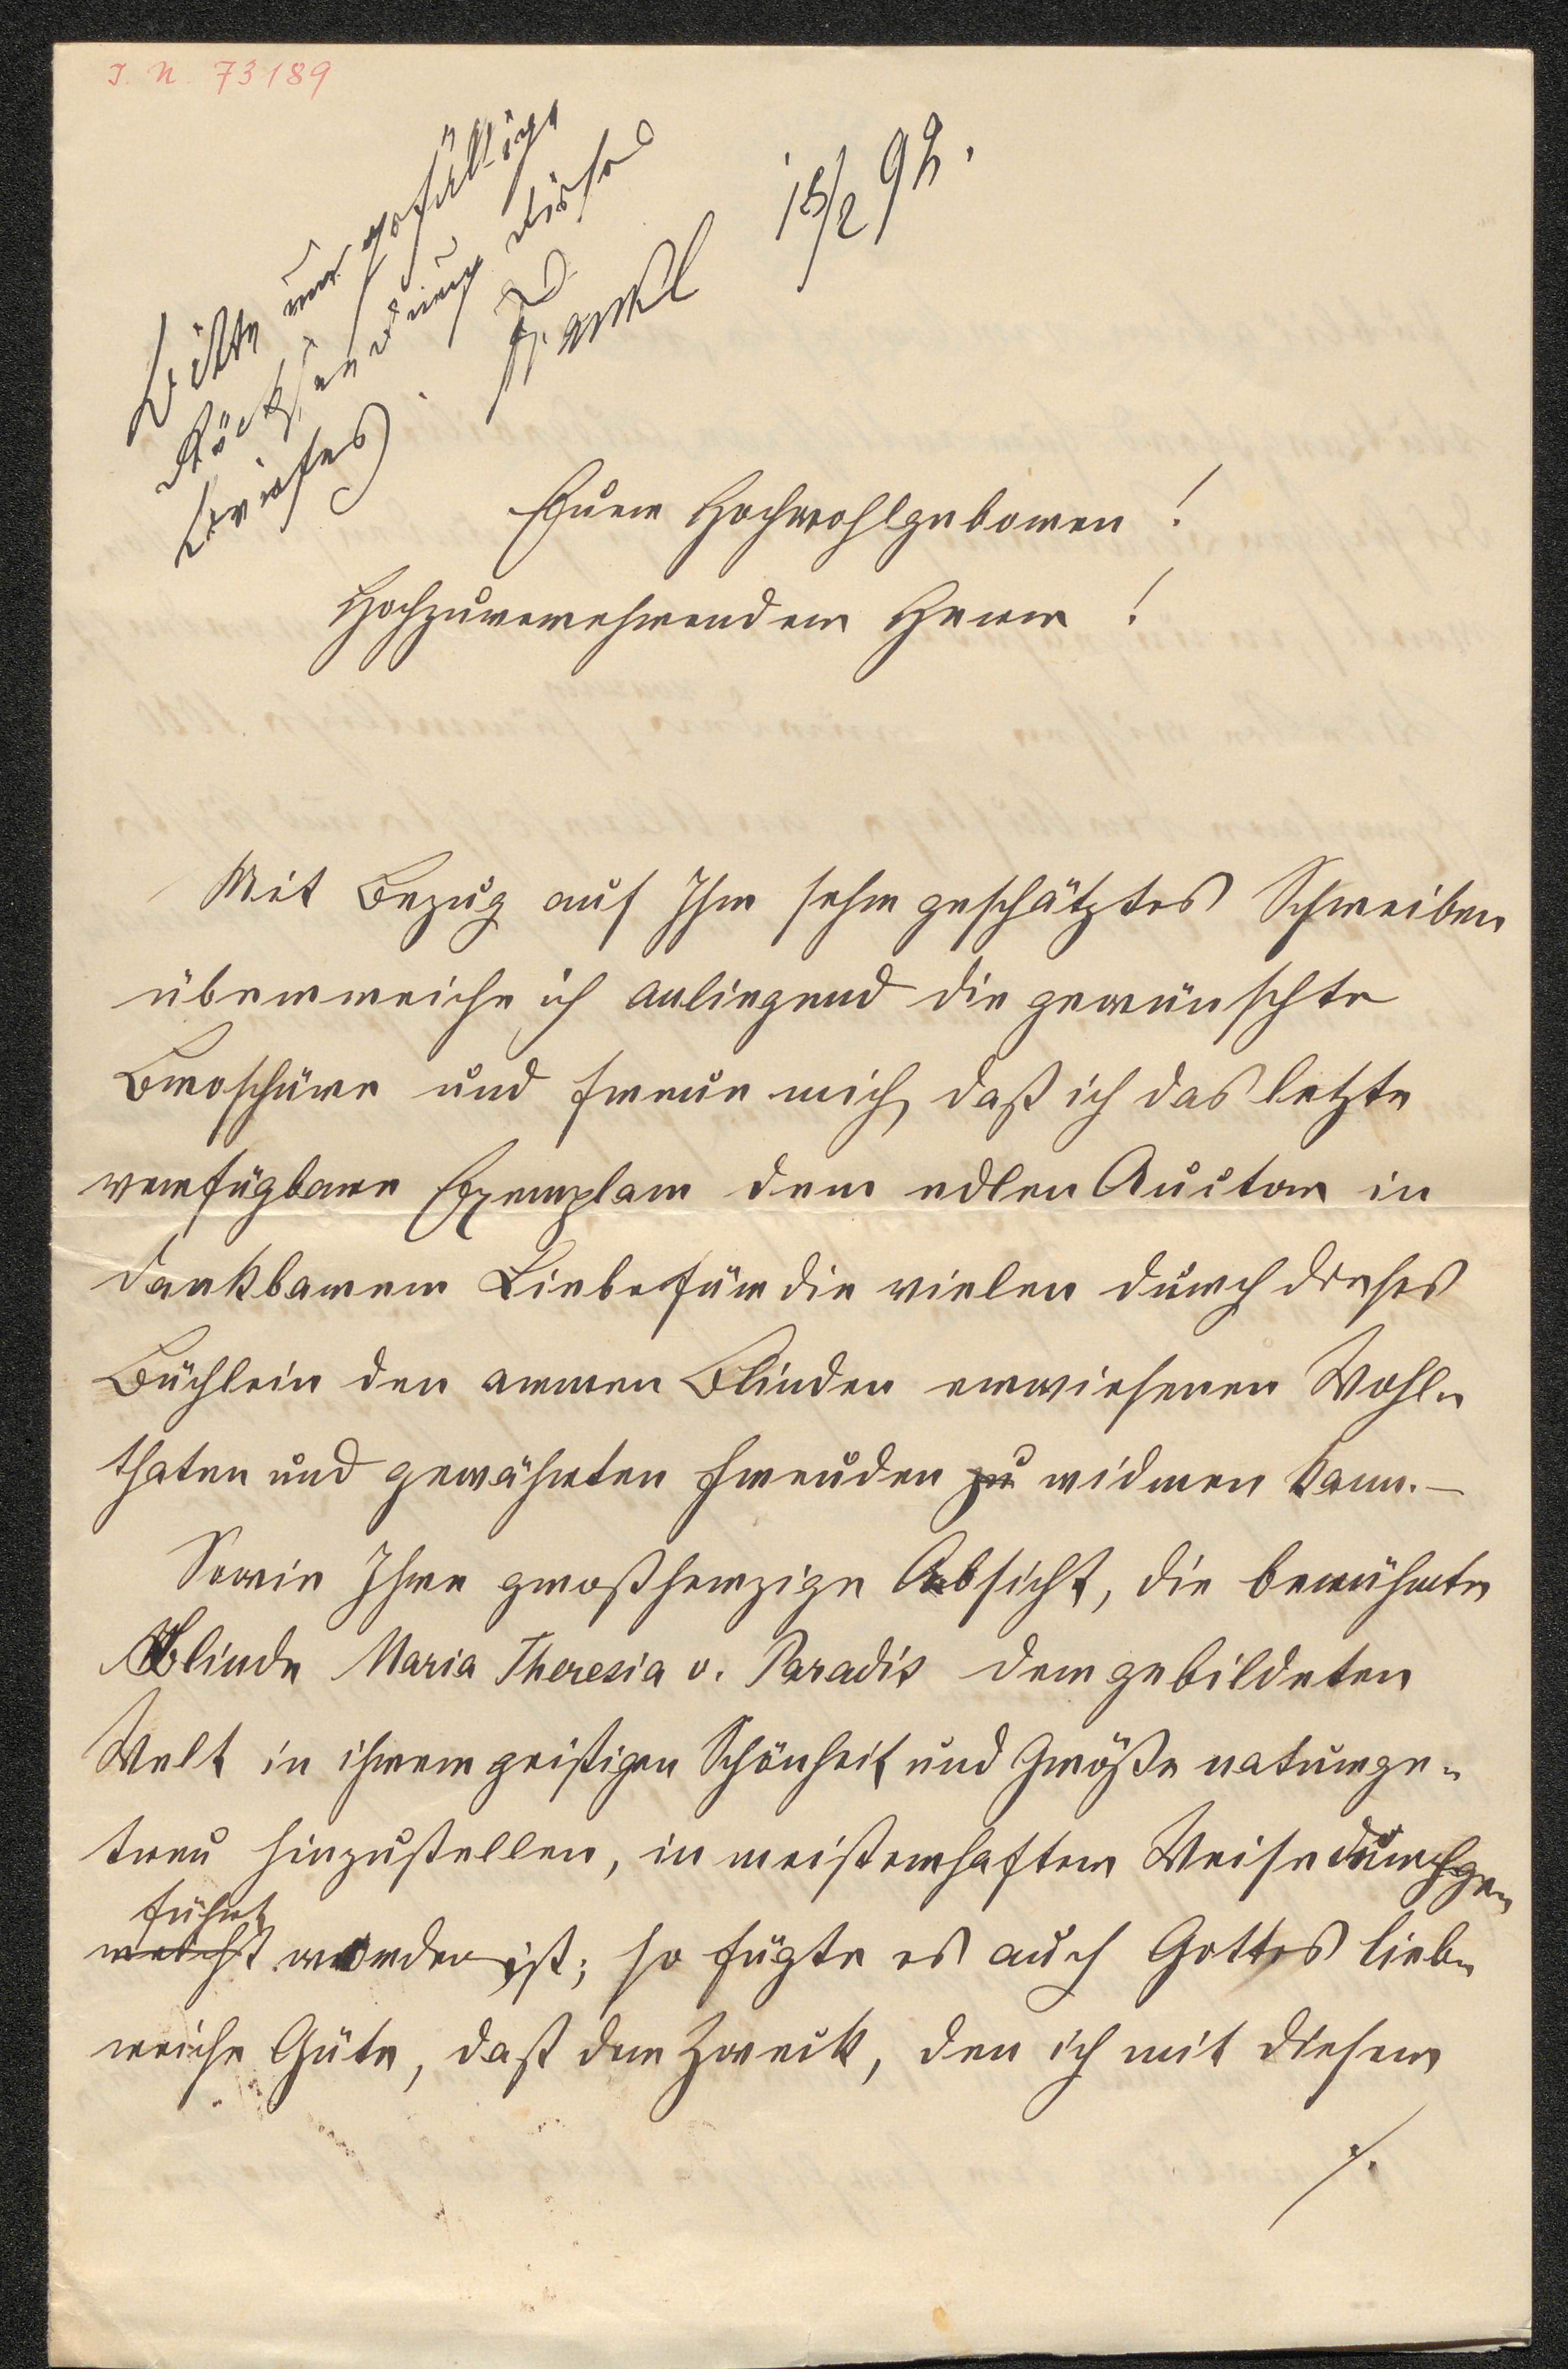 I. N. 73189
Bitte um gefällige
Rücksendung dieses
Briefes. D. Frankl
18/2 92.
Euer Hochwohlgeboren !
Hochzuverehrender Herr !
Mit Bezug auf Ihr sehr geschätztes Schreiben
überreiche ich anliegend die gewünschte
Broschüre und freue mich, daß ich das letzte
verfügbare Exemplar dem edlen Auctor in
dankbarer Liebe für die vielen durch dieses
Büchlein den armen Blinden erwiesenen Wohl-
thaten und gewährten Freuden zu widmen kann. —
Sowie Ihre großherzige Absicht, die berühmte
Blinde Maria Theresia v. Paradis der gebildeten
Welt in ihrer geistigen Schönheit und Größe naturge-
treu hinzustellen, in meisterhafter Weise durchge-
führt
reicht worden ist; so fügte es auch Gottes lieb-
reiche Güte, daß der Zweck, den ich mit diesem
./.